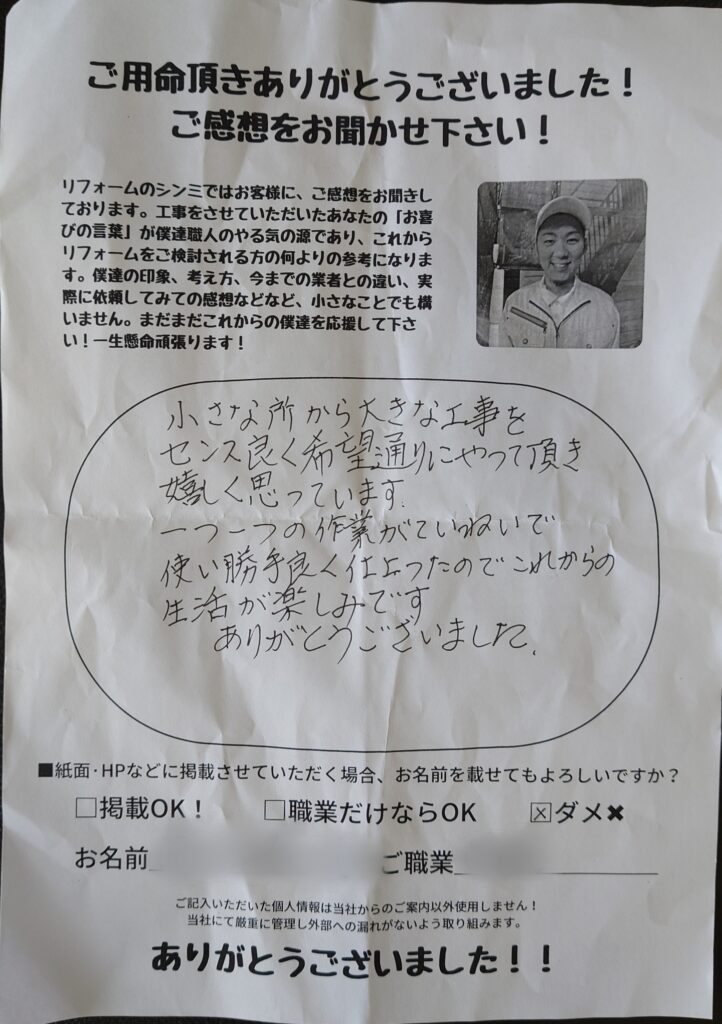 ご用命頂きありがとうございました！
ご感想をお聞かせ下さい！
リフォームのシンミではお客様に、ご感想をお聞きし
ております。工事をさせていただいたあなたの「お喜
びの言葉」が僕達職人のやる気の源であり、これから
リフォームをご検討される方の何よりの参考になりま
す。僕達の印象、考え方、今までの業者との違い、実
際に依頼してみての感想などなど、小さなことでも構
いません。まだまだこれからの僕達を応援して下さ
い！一生懸命頑張ります！
小さな所から大きな工事を
センス良く希望通りにやって頂き
嬉しく思っています.
一つ一つの作業がていねいで
使い勝手良く仕上ったのでこれからの
生活が楽しみです
ありがとうございました.
■紙面・HPなどに掲載させていただく場合、お名前を載せてもよろしいですか？
□掲載OK！ □職業だけならOK ☒ダメ✖
お名前 ご職業
ご記入いただいた個人情報は当社からのご案内以外使用しません！
当社にて厳重に管理し外部への漏れがないよう取り組みます。
ありがとうございました！！